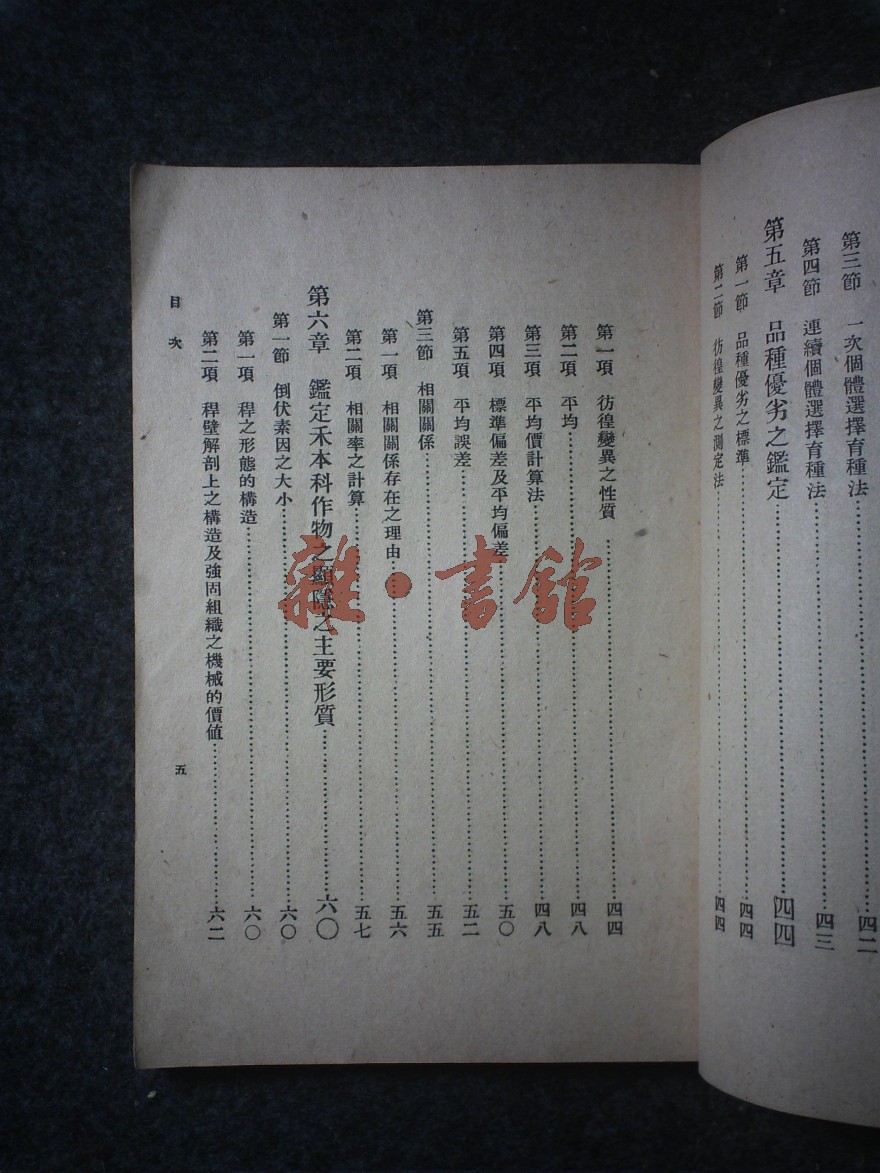 第三節 一次個體選擇育種法……四二
第四節 連續個體選擇育種法……四三
第五章 品種優劣之鑑定……四四
第一節 品種優劣之標準……四四
第二節 彷徨變異之測定法……四四
第一項 彷徨變異之性質……四四
第二項 平均……四八
第三項 平均價計算法……四八
第四項 標準偏差及平均偏差……五〇
第五項 平均誤差……五二
第三節 相關關係……五五
第一項 相關關係存在之理由……五六
第二項 相關率之計算……五七
第六章 鑑定禾本科作物之顯隱之主要形質……六〇
第一節 倒伏素因之大小……六〇
第一項 稈之形態的構造……六〇
第二項 稈壁解剖上之構造及強固組織之機械的價値……六二
目次
五
雜·書館